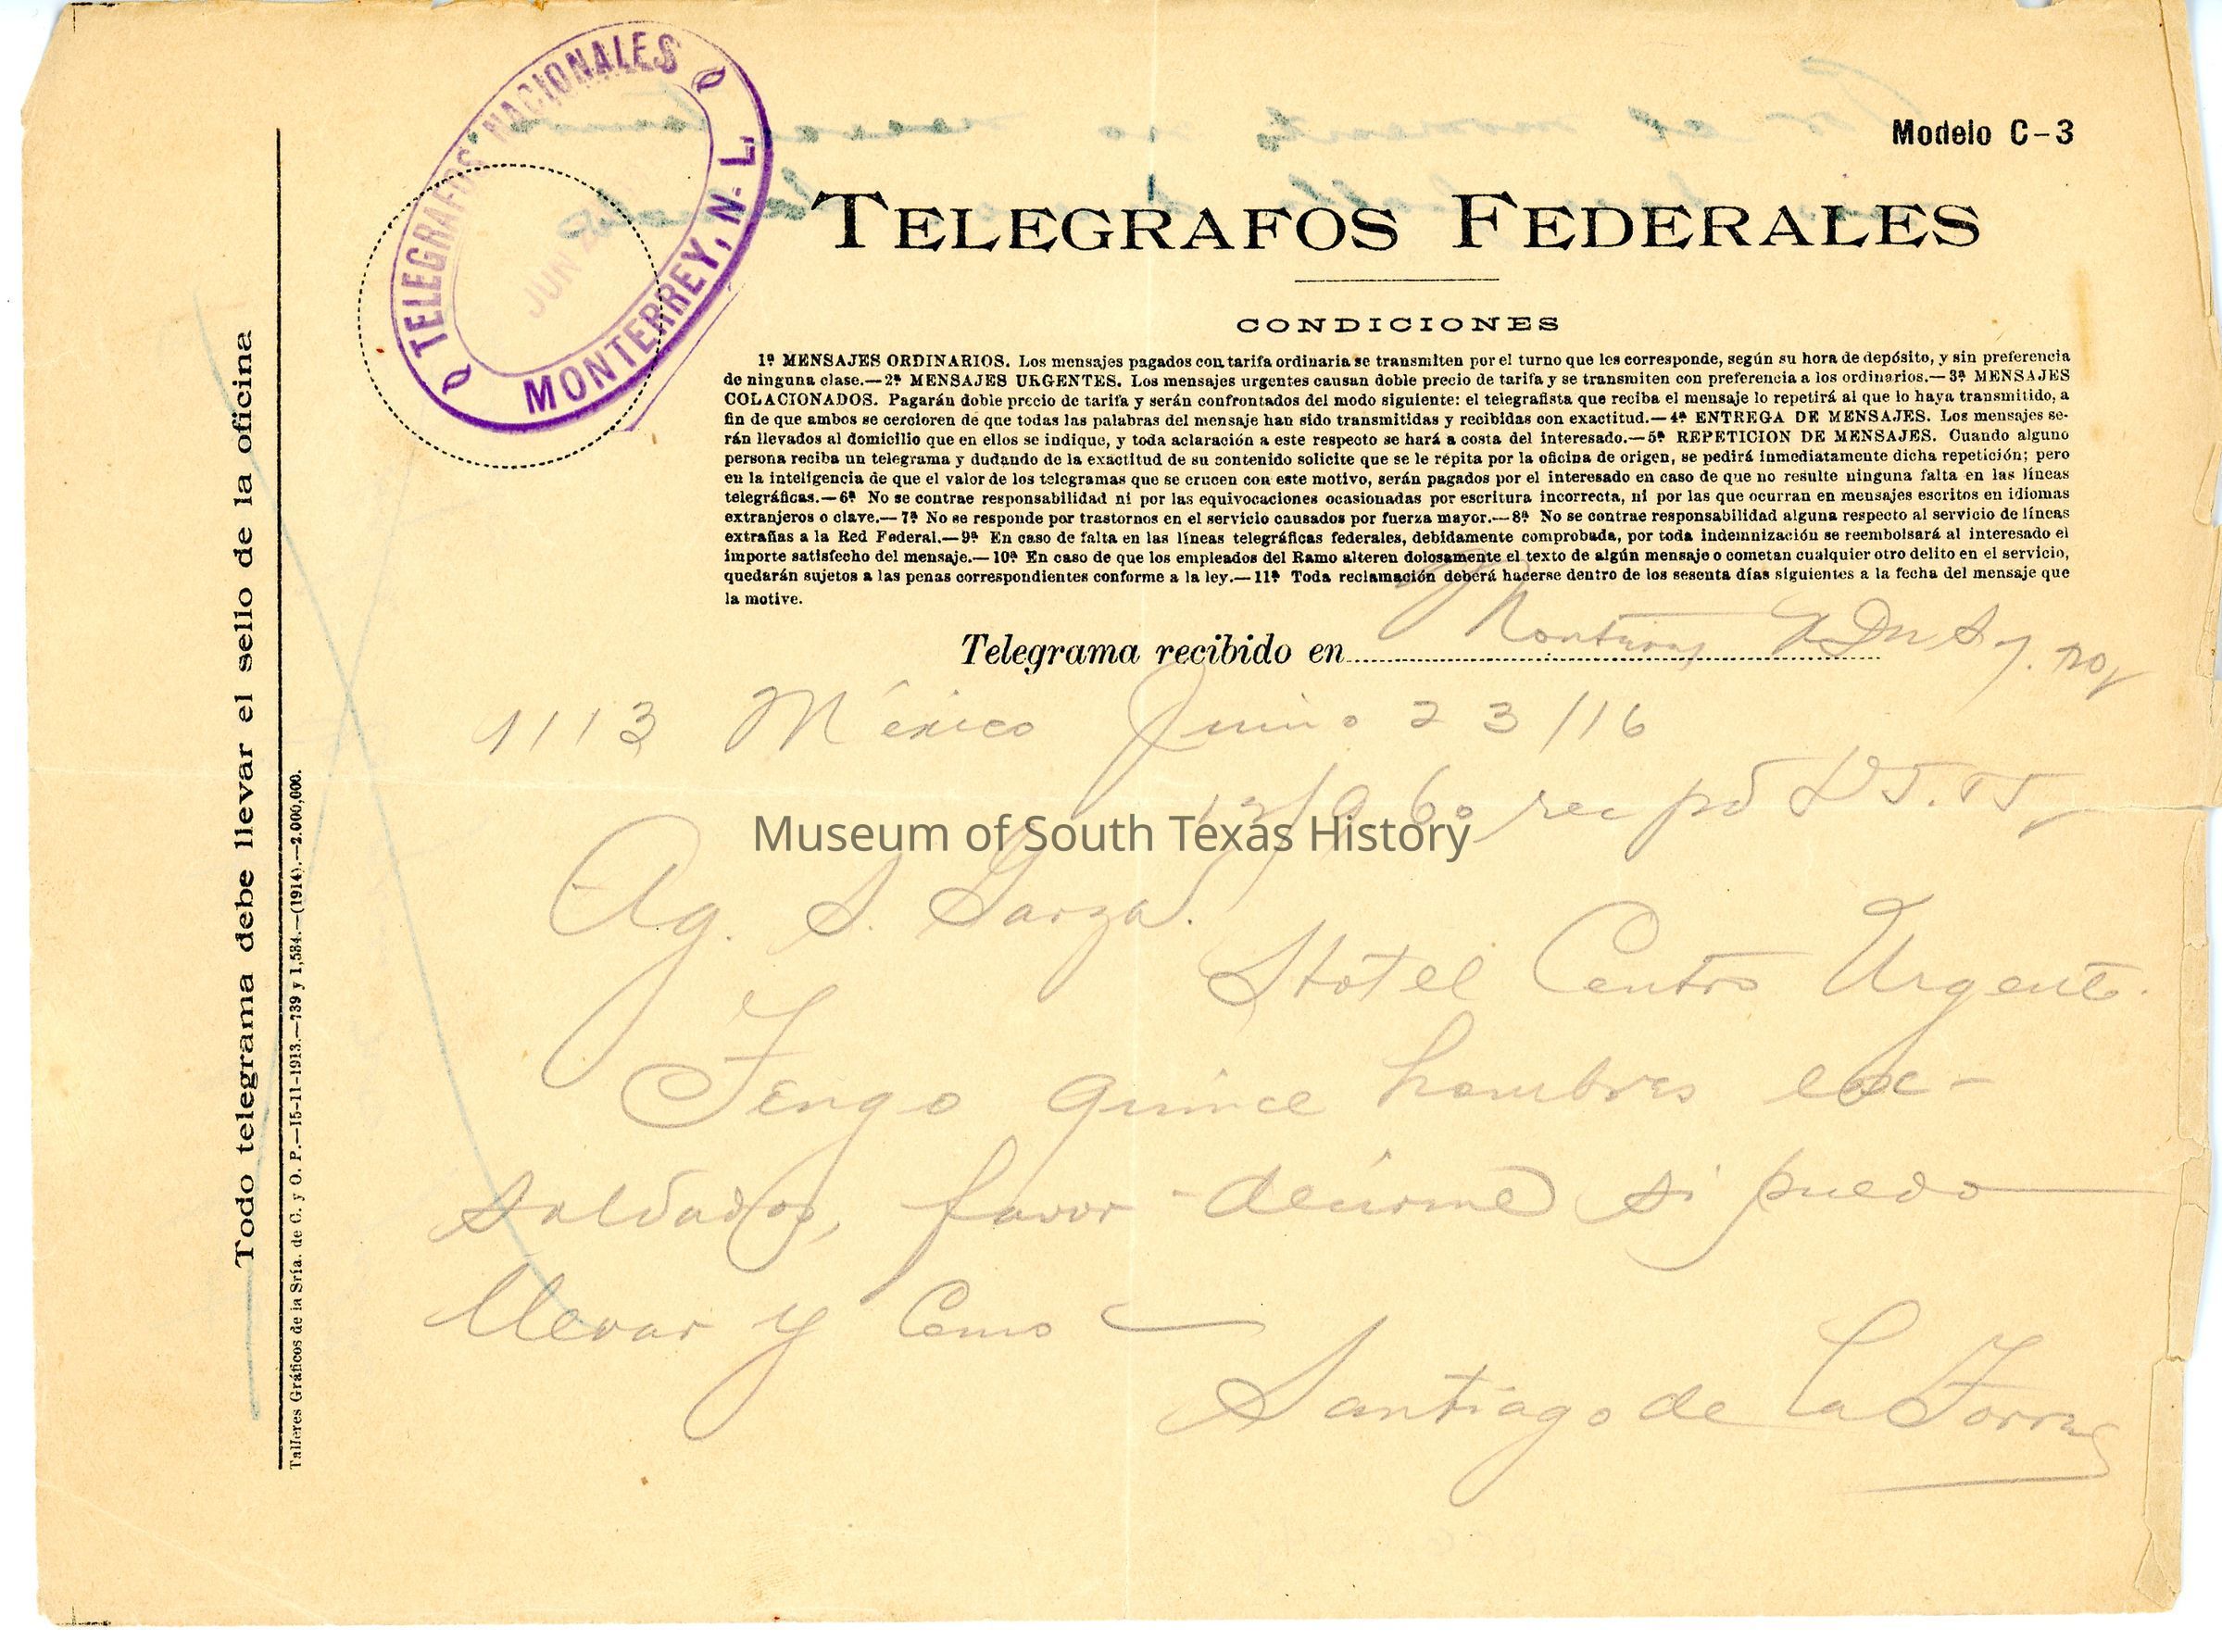 Modelo C-3
TELEGRAFOS NACIONALES
JUN 23
MONTERREY, N. L.
TELEGRAFOS FEDERALES
CONDICIONES
1ª MENSAJES ORDINARIOS. Los mensajes pagados con tarifa ordinaria se transmiten por el turno que les corresponde, según su hora de depósito, y sin preferencia
de ninguna clase.—2ª MENSAJES URGENTES. Los mensajes urgentes causan doble precio de tarifa y se transmiten con preferencia a los ordinarios.—3ª MENSAJES
COLACIONADOS. Pagarán doble precio de tarifa y serán confrontados del modo siguiente: el telegrafista que reciba el mensaje lo repetirá al que lo haya transmitido, a
fin de que ambos se cercioren de que todas las palabras del mensaje han sido transmitidas y recibidas con exactitud.—4ª ENTREGA DE MENSAJES. Los mensajes se-
rán llevados al domicilio que en ellos se indique, y toda aclaración a este respecto se hará a costa del interesado.—5ª REPETICION DE MENSAJES. Cuando alguno
persona reciba un telegrama y dudando de la exactitud de su contenido solicite que se le repita por la oficina de origen, se pedirá inmediatamente dicha repetición; pero
en la inteligencia de que el valor de los telegramas que se crucen con este motivo, serán pagados por el interesado en caso de que no resulte ninguna falta en las líneas
telegráficas.—6ª No se contrae responsabilidad ni por las equivocaciones ocasionadas por escritura incorrecta, ni por las que ocurran en mensajes escritos en idiomas
extranjeros o clave.—7ª No se responde por trastornos en el servicio causados por fuerza mayor.—8ª No se contrae responsabilidad alguna respecto al servicio de líneas
extrañas a la Red Federal.—9ª En caso de falta en las líneas telegráficas federales, debidamente comprobada, por toda indemnización se reembolsará al interesado el
importe satisfecho del mensaje.—10ª En caso de que los empleados del Ramo alteren dolosamente el texto de algún mensaje o cometan cualquier otro delito en el servicio,
quedarán sujetos a las penas correspondientes conforme a la ley.—11ª Toda reclamación deberá hacerse dentro de los sesenta días siguientes a la fecha del mensaje que
la motive.
Telegrama recibido en Monterrey
1113 México Junio 23/16
rec
Museum of South Texas History
Ag. S. Garza.
Hotel Centro Urgente.
Tengo quince hombres ex-
soldados, favor decirme si puedo
llevar y Como
Santiago de la Torre
Todo telegrama debe llevar el sello de la oficina
Talleres Gráficos de la Sría. de C. y O. P.—15-11-1913.—739 y 1,584.—(1914).—2.000,000.